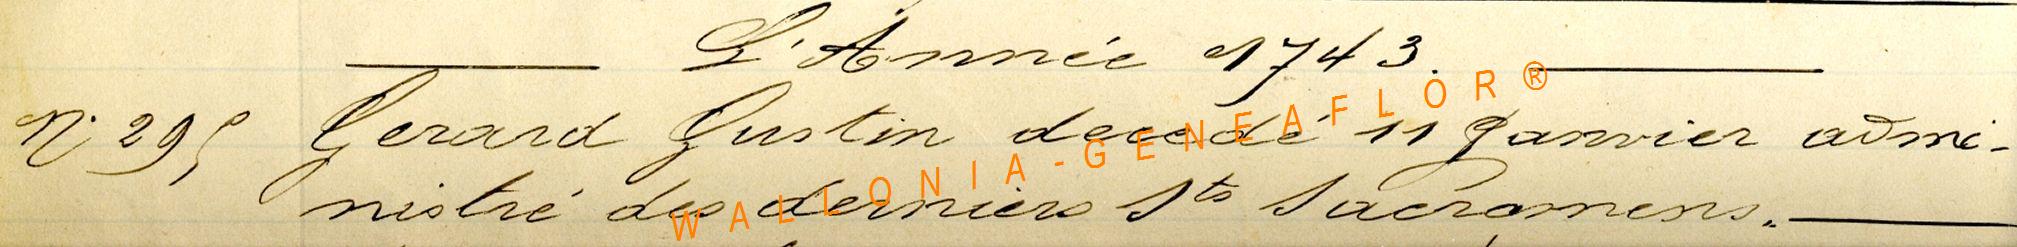 L'Année 1743.
N° 295 Gerard Gustin decedé 11 Janvier admi-
nistré des derniers Sts Sacremens.
WALLONIA-GENEAFLOR®